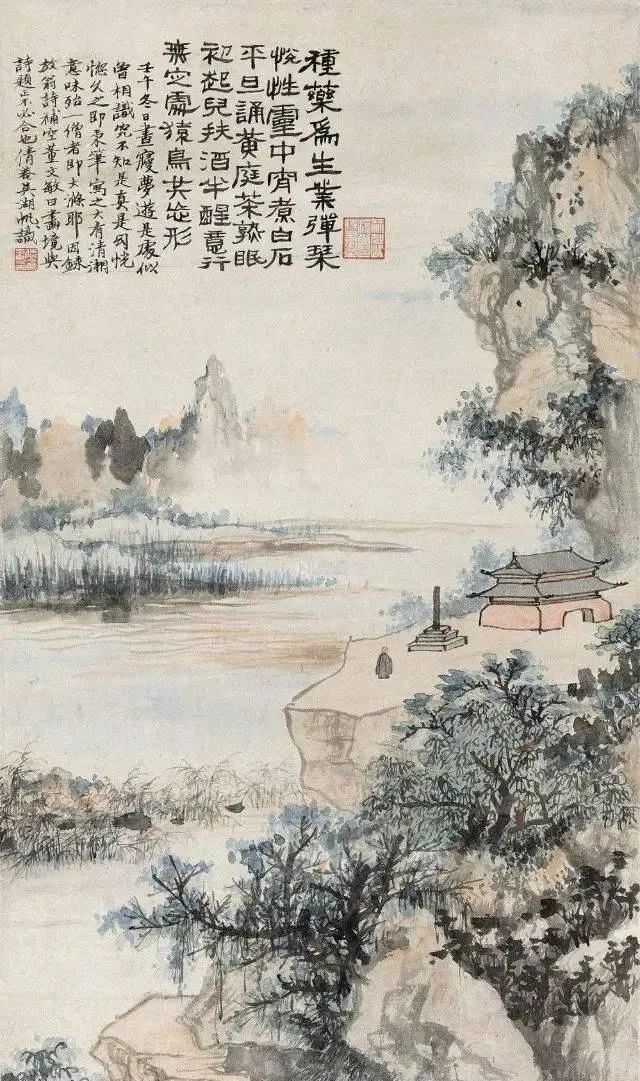 種藥爲生業彈琴
悅性靈中宵煮白石
平旦誦黃庭茶熟眠
初起兒扶酒半醒意行
無定處猿鳥共忘形
壬午冬日晝寢夢遊是處似
曾相識究不知是真是幻恍
惚久之即秉筆寫之大有清湘
意味殆一僧者即大滌耶因錄
放翁詩補空董文敏曰畫境與
詩題正不必合也倩菴吳湖帆識